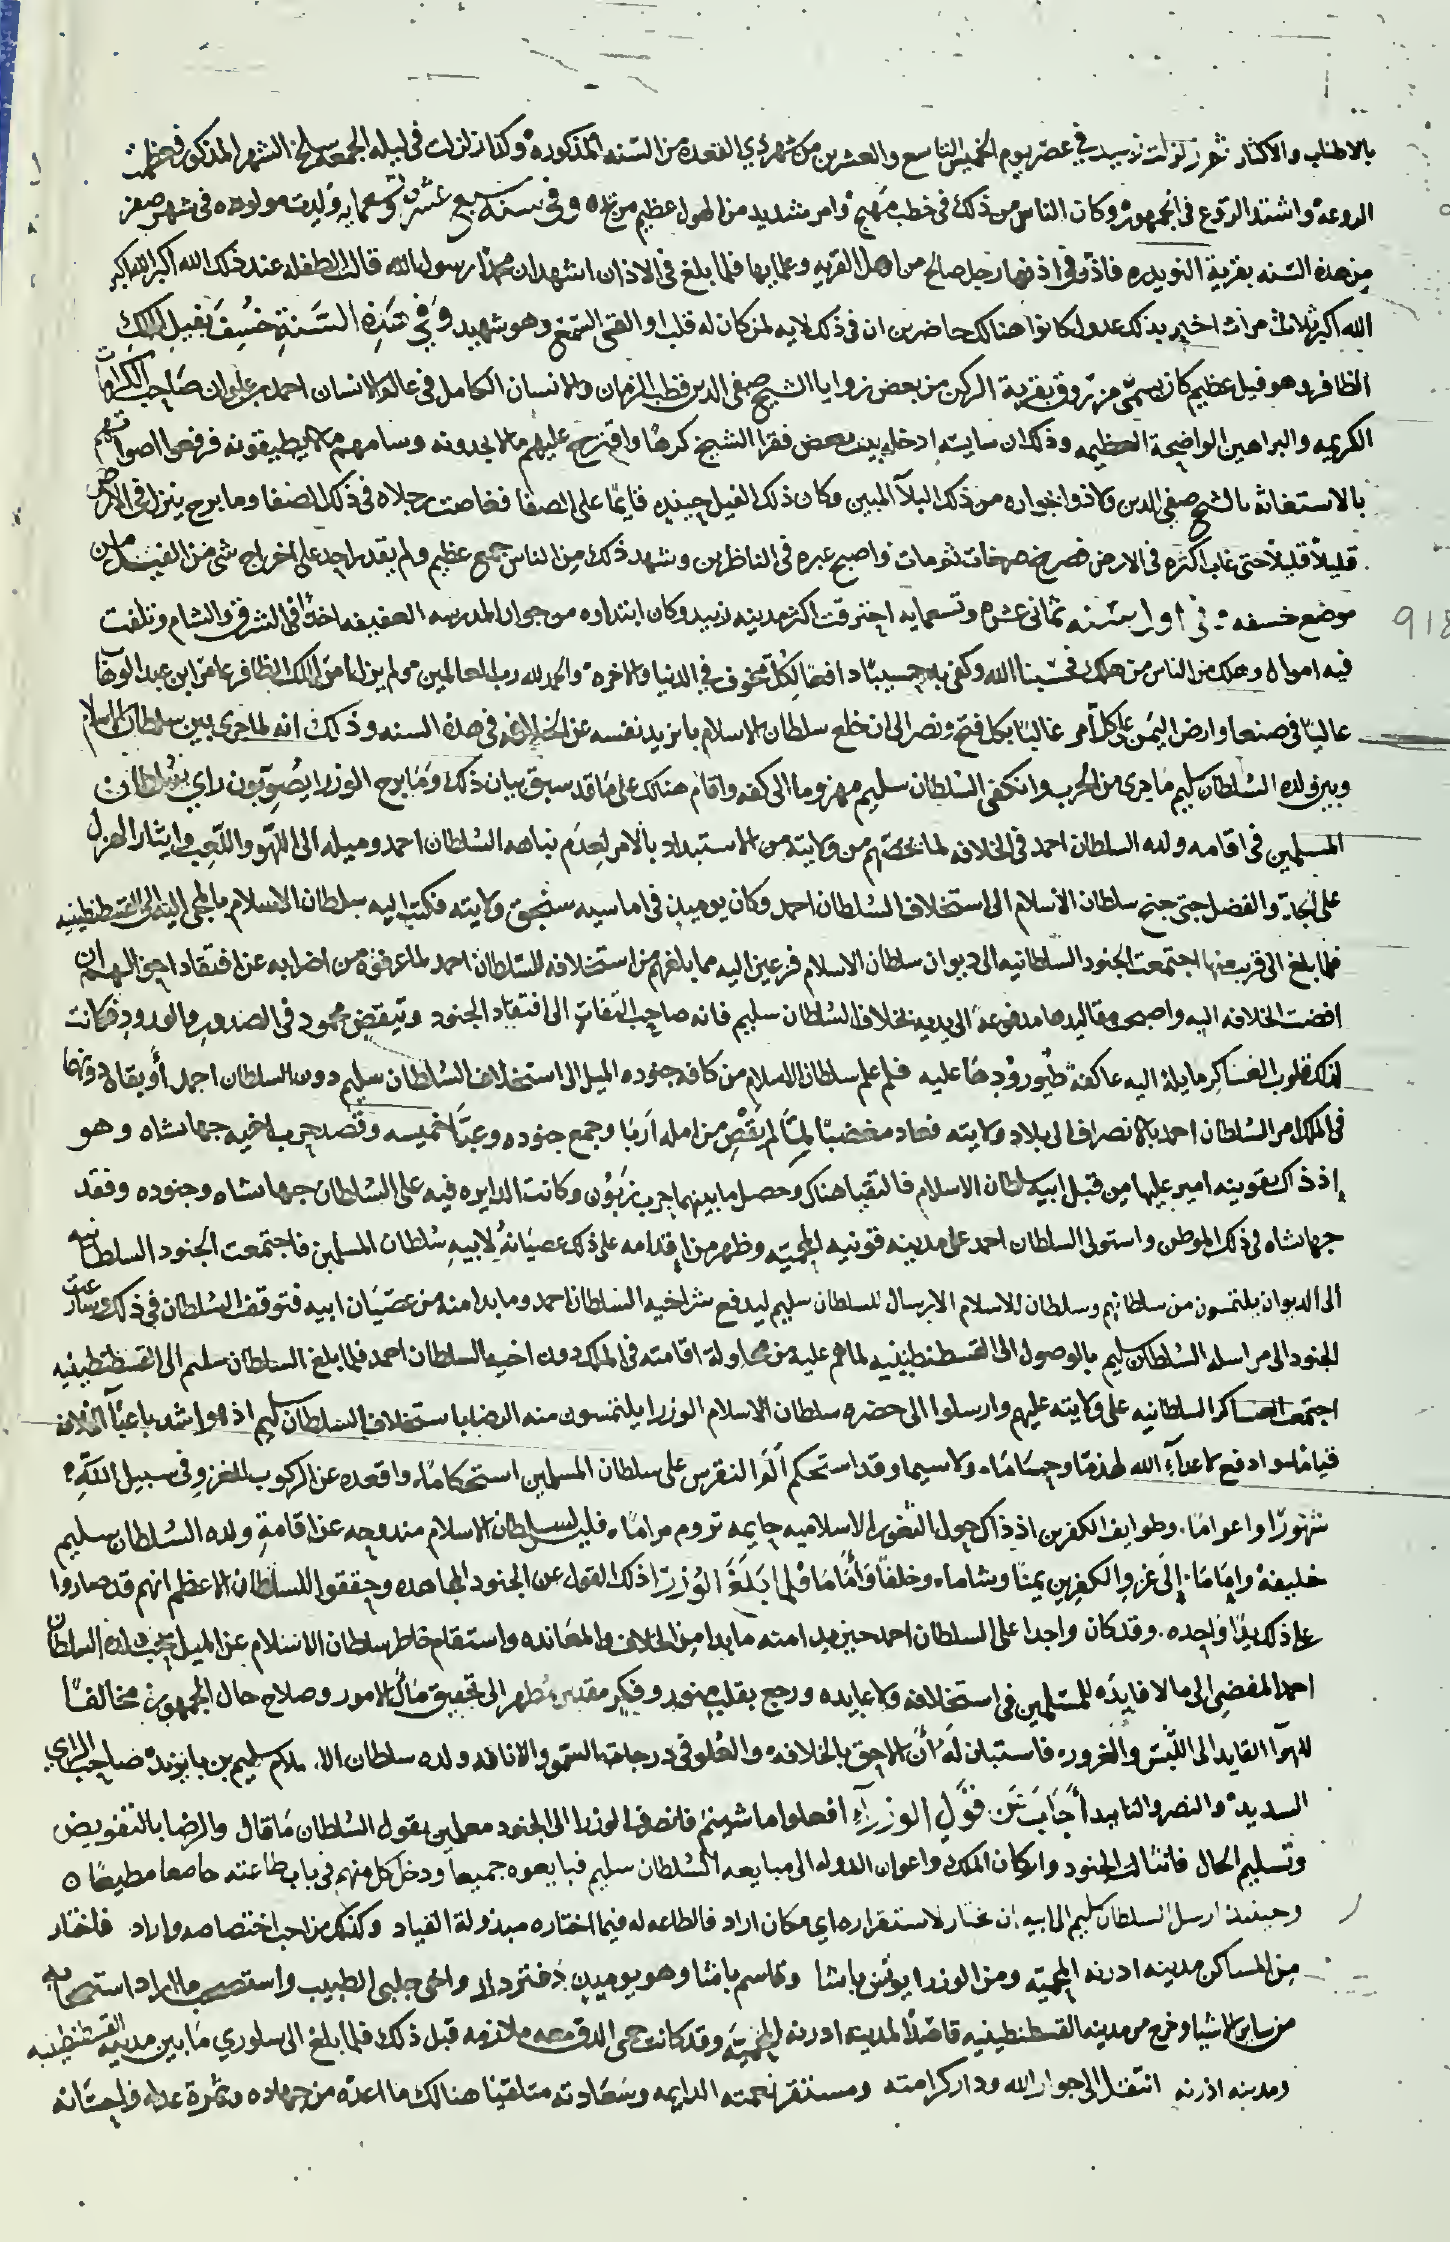 بالاطناب والاكثار ثم زلزلت زبيد في عصر يوم الخميس التاسع والعشرين من شهر ذي القعده من السنه المذكوره وكذا زلزلت في ليله الجمعه سلخ الشهر المذكور فعظمت
الروعه واشتد الروع في الجمهور وكان الناس من ذلك في خطب مهيج وامر شديد من الهول عظيم مزعج وفي سنه سبع عشره وتسعمايه ولدت مولوده في شهر صفر
من هذه السنه بقرية النويدره فاذن في اذنها رجل صالح من اهل القريه فلما بلغ في الاذان اشهد ان محمدا رسول الله قالت الطفله عند ذلك الله اكبر الله اكبر
الله اكبر ثلاث مرات اخبر بذلك عدول كانوا هنالك حاضرين ان في ذلك لايه لمن كان له قلب او القى السمع وهو شهيد وفي هذه السنة خسف بفيل الملك
الظافر وهو فيل عظيم كان يسمى مرزوق بقرية الركن من بعض زوايا الشيخ صفي الدين قطب الزمان والانسان الكامل في عالم الانسان احمد بن علوان صاحب الكرامات
الكريمه والبراهين الواضحة العظيمه وذلك ان سايسه ادخله بيت بعض فقرا الشيخ كرها واقترح عليهم ما لا يجدونه وسامهم ما لا يطيقونه فرفعوا اصواتهم
بالاستغاثة بالشيخ صفي الدين ولاذوا بجواره من ذلك البلآ المبين وكان ذلك الفيل حينيذ قايما على الصفا فغاصت رجلاه في ذلك الصفا وما برح ينزل في الارض
قليلا قليلا حتى غاب اكثره في الارض فصرخ صرخات ثم مات واصبح عبره في الناظرين وشهد ذلك من الناس جمع عظيم ولم يقدر احد على اخراج شي من الفيل من
موضع خسفه وفي اول سنه ثماني عشره وتسعمايه احترقت اكثر مدينه زبيد وكان ابتداوه من جوار المدرسه العفيفه اخذا في الشرق والشام وتلفت
فيه اموال وهلك من الناس من هلك فحسبنا الله وكفى به حسيبا دافعا لكل مخوف في الدنيا والاخره والحمد لله رب العالمين ولم يزل امر الملك الظافر عامر ابن عبد الوهاب
عاليا في صنعا وارض اليمن على كل امر غالبا بكل فتح ونصر الى ان خلع سلطان الاسلام بايزيد نفسه عن الخلافه في هذه السنه وذلك انه لما جرى بين سلطان الاسلام
وبين ولده السلطان سليم ما جرى من الحرب وانكفى السلطان سليم مهزوما الى كفه واقام هنالك على ما قد سبق بيان ذلك وما برح الوزرا يصوبون راي سلطان
المسلمين في اقامه ولده السلطان احمد في الخلافه لما يخصهم من ولايته من الاستبداد بالامر لعدم نباهه السلطان احمد وميله الى اللهو واللعب وايثار الهزل
على الجد والفضل حتى جنح سلطان الاسلام الى استخلاف السلطان احمد وكان يوميذ في اماسيه سنجق ولايته فكتب اليه سلطان الاسلام بالمجي اليه الى القسطنطينيه
فلما بلغ الى قريب منها اجتمعت الجنود السلطانيه الى ديوان سلطان الاسلام فزعين اليه مما بلغهم من استخلافه للسلطان احمد لما عرفوه من اضرابه عن افتقاد احوالهم ان
افضت الخلافه اليه واصبحت مقاليدها مدفوعه الى يديه بخلاف السلطان سليم فانه صاحب التفات الى افتقاد الجنود وتيقض محمود في الصدور والورود فكانت
لذلك قلوب العساكر مايلة اليه عاكفة طيور ودها عليه فلما علم سلطان الاسلام من كافه جنوده الميل الى استخلاف السلطان سليم دون السلطان احمد
في الملك امر السلطان احمد بالانصراف الى بلاد ولايته فعاد مغضبا لما لم يقض من امله اربا وجمع جنوده وعبا خميسه وقصد حرب اخيه جهانشاه وهو
اذ ذاك بقونيه امير عليها من قبل ابيه سلطان الاسلام فالتقيا هناك وحصل ما بينهما حرب زبون وكانت الدايره فيه على السلطان جهانشاه وجنوده وفقد
جهانشاه في ذلك الموطن واستولى السلطان احمد على مدينه قونيه المحميه وظهر من اقدامه على ذلك عصيانه لابيه سلطان المسلمين فاجتمعت الجنود السلطانيه
الى الديوان يلتمسون من سلطانهم وسلطان الاسلام الارسال للسلطان سليم ليدفع شر اخيه السلطان احمد وما بدا منه من عصيان ابيه فتوقف السلطان في ذلك وسارعت
الجنود الى مراسله السلطان سليم بالوصول الى القسطنطينيه لما هم عليه من محاولة اقامته في الملك دون اخيه السلطان احمد فلما بلغ السلطان سليم الى القسطنطينيه
اجتمعت العساكر السلطانيه على ولايته عليهم وارسلوا الى حضره سلطان الاسلام الوزرا يلتمسون منه الرضا باستخلاف السلطان سليم اذ هو اشد باعبآ الخلافه
قياما وادفع لاعدآء الله لهذما وحساما ولا سيما وقد استحكم الم النقرس على سلطان المسلمين استحكاما واقعده عن الركوب للغزو في سبيل الله
شهورا واعواما وطوايف الكفرين اذ ذاك حول الثغور الاسلاميه حايمه تروم مراما فليس لسلطان الاسلام مندوحه عن اقامة ولده السلطان سليم
خليفة واماما الى غزو الكفرين يمنا وشاما وخلفا واماما فلما بلغ الوزرا ذلك القول عن الجنود المجاهده وحققوا للسلطان الاعظم انهم قد صاروا
على ذلك يدا واحده وقد كان واجدا على السلطان احمد حين بدا منه ما بدا من الخلاف والمعانده واستقام خاطر سلطان الاسلام عن الميل ولده السلطان
احمد المفضي الى ما لا فايده للمسلمين في استخلافه ولا عايده ورجع بقلب منور وفكر مطهر الى تحقيق مآل الامور وصلاح حال الجمهور مخالفا
للهوآ القايد الى اللبس والغرور فاستبان له ان الاحق بالخلافه والعلو في درجات السمو والانافه ولده سلطان الاسلام سليم بن بايزيد صاحب الراي
السديد والنصر والتاييد اجاب عن قول الوزرآء افعلوا ما شيتم فانصرف الوزرا الى الجنود معلمين بقول السلطان ما قال والرضا بالتفويض
وتسليم الحال فانثالت الجنود واركان الملك واعوان الدوله الى مبايعه السلطان سليم فبايعوه جميعا ودخل كل منهم في باب طاعته خاضعا مطيعا ه
وحينيذ ارسل السلطان سليم الى ابيه ان يختار لاستقراره اي مكان اراد فالطاعه له فيما اختاره مبذولة القياد وكذلك من احب اختصاصه واراد فاختار
من المساكن مدينه ادرنه المحميه ومن الوزرا يونس باشا وقاسم باشا وهو يوميذ دفتردار واخي جلبي الطبيب واستصحب ما اراد استصحابه
من ساير الاشيا وخرج من مدينه القسطنطينيه قاصدا لمدينه ادرنه المحميه وقد كانت حمى الدق معه ملازمه قبل ذلك فلما بلغ الى سلوري ما بين مدينه القسطنطينيه
ومدينه ادرنه انتقل الى جوار الله ودار كرامته ومستقر نعمته الدايمه وسعادته متلقيا هنالك ما اعده من جهاده وثمرة عدله واحسانه
918